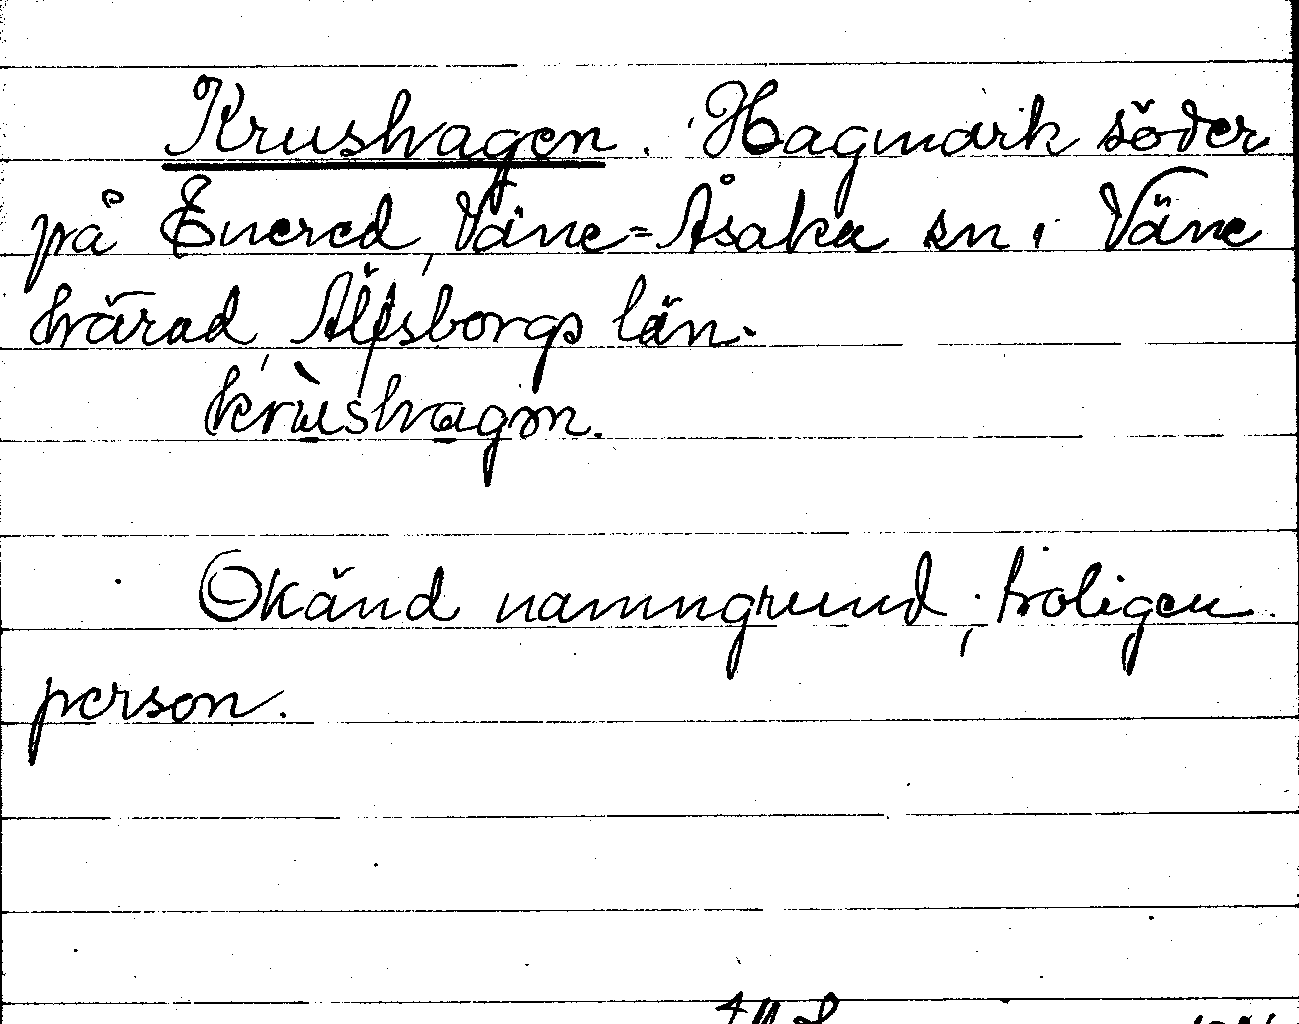 Krushagen. Hagmark söder
på Enered, Väne-Åsaka sn i Väne
härad, Älfsborgs län.
krùshagən.
Okänd namngrund, troligen
person.